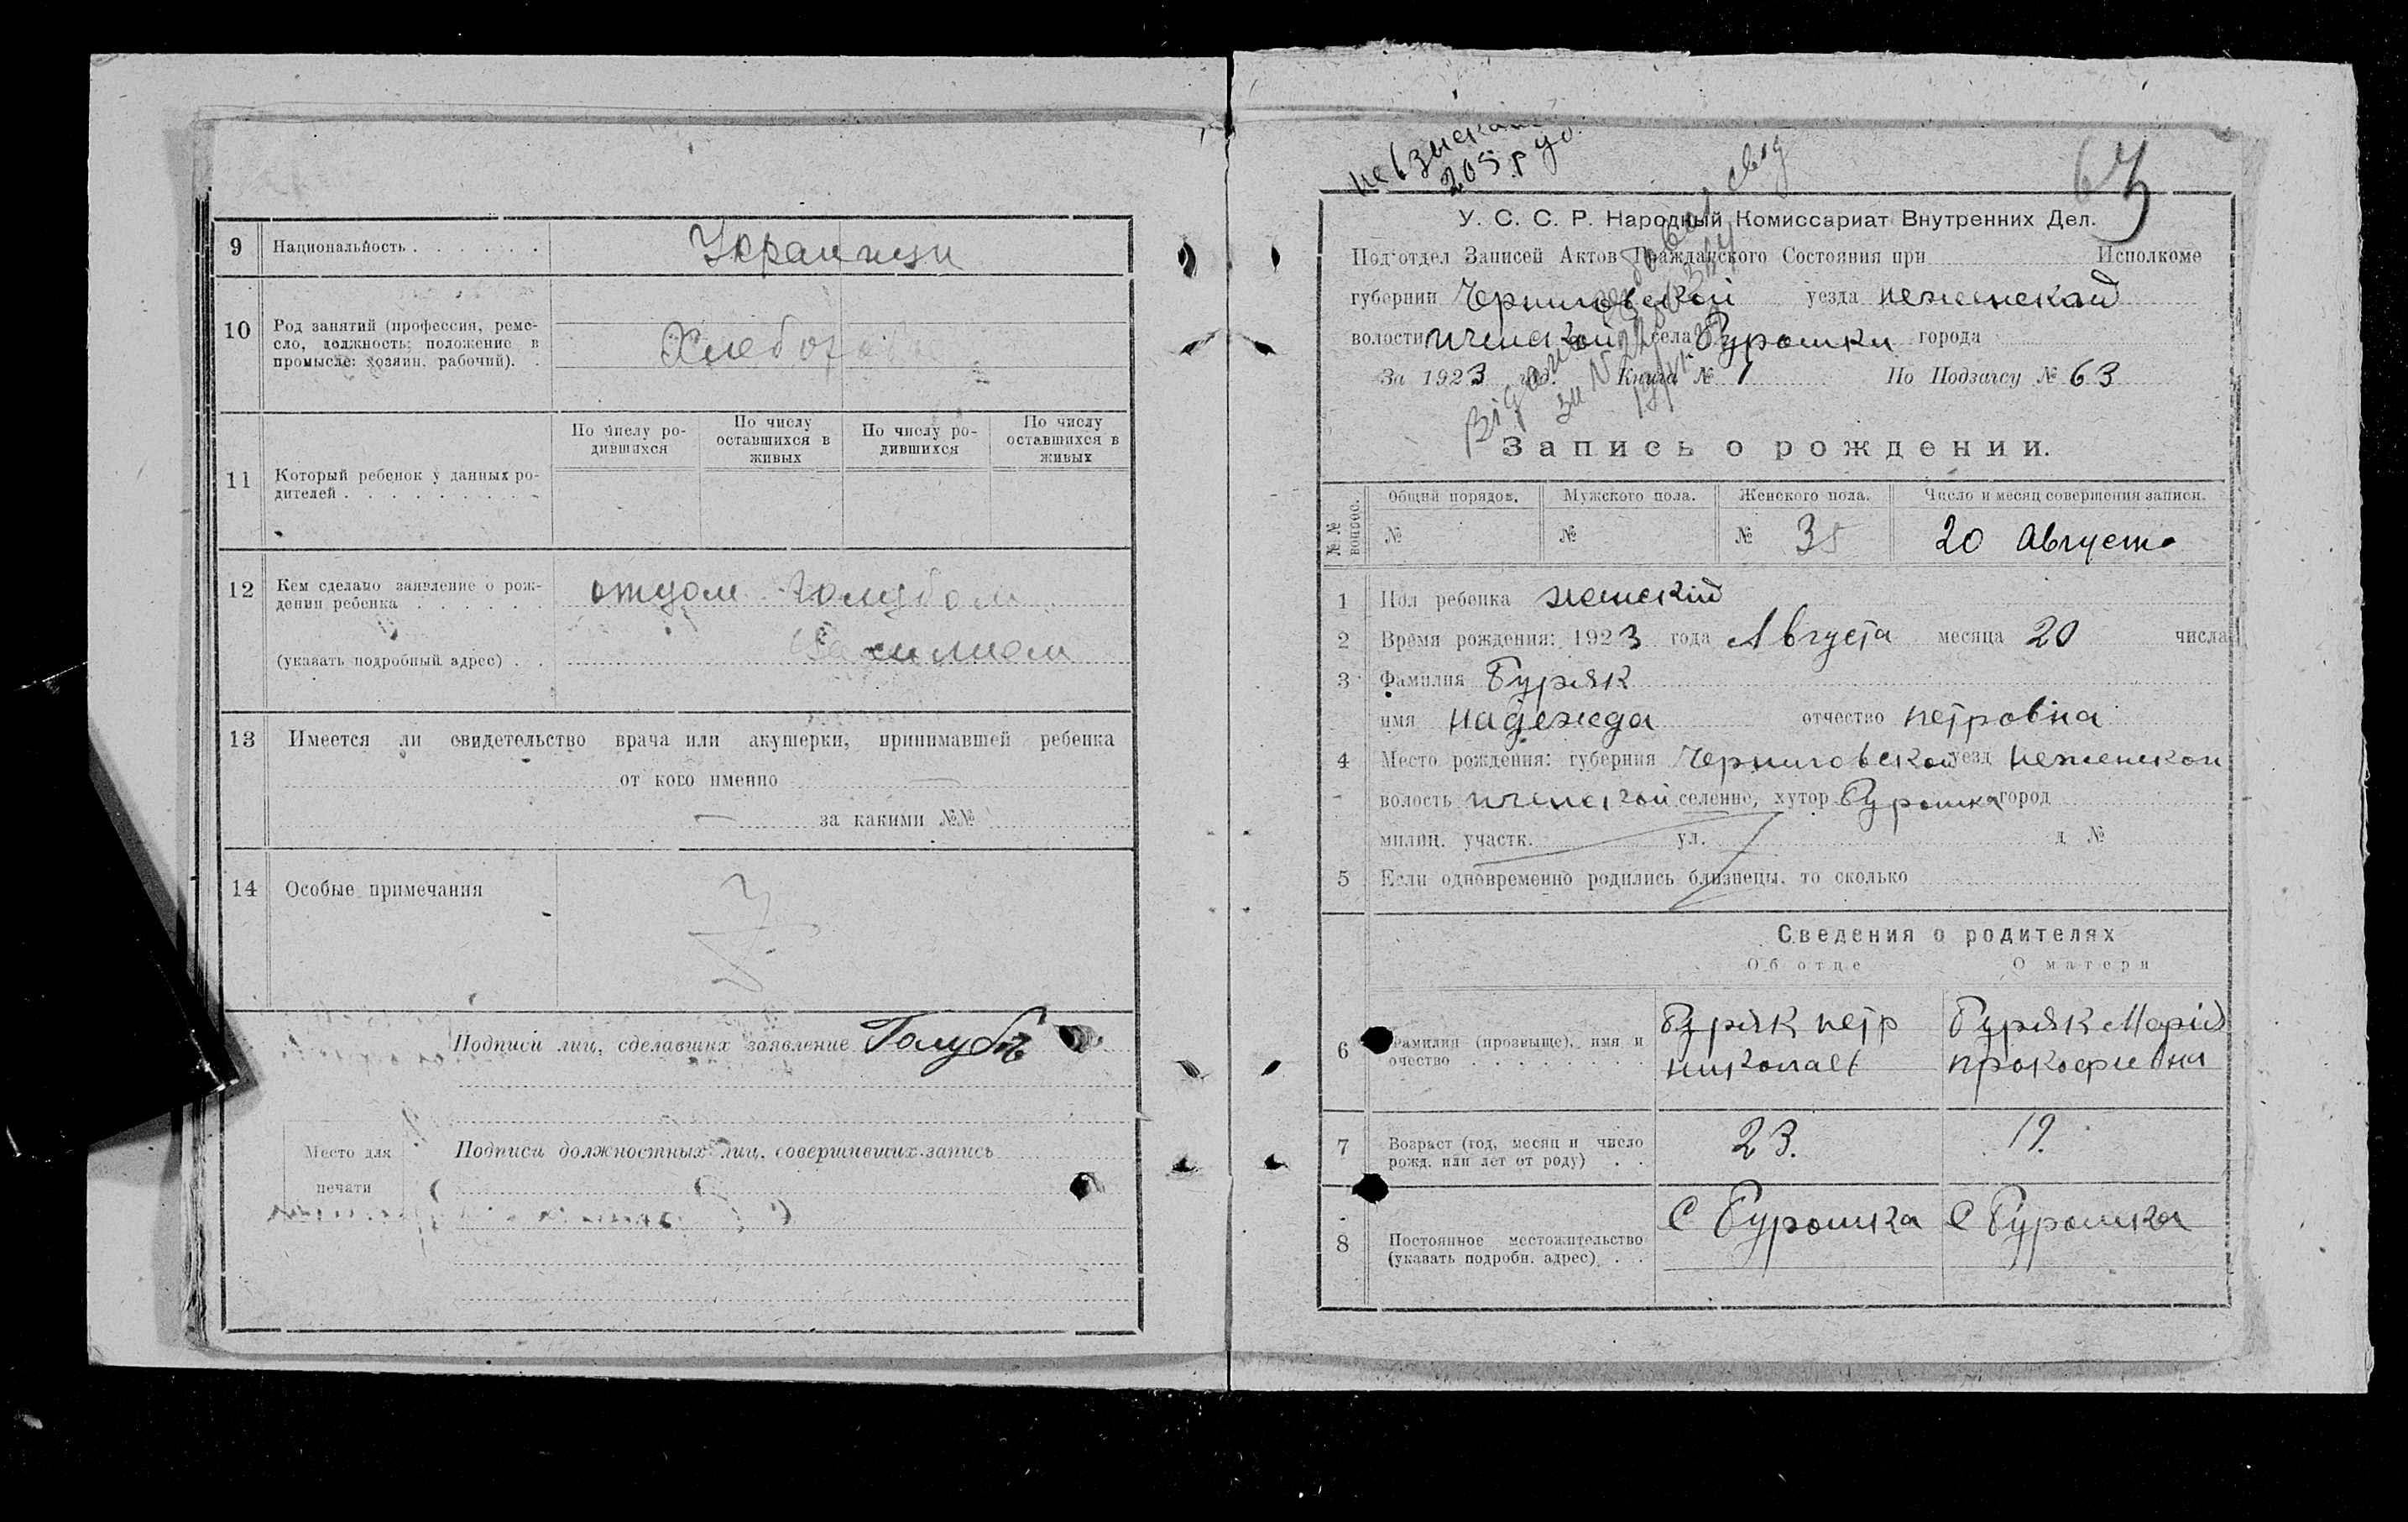 9 Национальность . . . . . . Украинци
10 Род занятий (профессия, реме-
сло, должность; положение в
промысле: хозяин, рабочий). .
Хлебороб
11 Который ребенок у данных ро-
дителей . . . . . . . . .
По числу ро-
дившихся
По числу
оставшихся в
живых
По числу ро-
дившихся
По числу
оставшихся в
живых
12 Кем сделано заявление о рож-
дении ребенка . . . . . .
отцом Голубом
(указать подробный адрес) . .
Василием
13 Имеется ли свидетельство врача или акушерки, принимавшей ребенка
от кого именно
за какими №№
14 Особые примечания
Подписи лиц, сделавших заявление Голубъ
Место для
печати
Подписи должностных лиц, совершивших запись
205 р
63
У. С. С. Р. Народный Комиссариат Внутренних Дел.
Подотдел Записей Актов Гражданского Состояния при Исполкоме
губернии Черниговской уезда неженской
волости села Буромки города
За 1923 год. Книга № 1 По Подзагсу № 63
Запись о рождении.
№№ вопрос.
Общий порядов. Мужского пола. Женского пола. Число и месяц совершения записи.
№ № № 35 20 Августа
1 Пол ребенка женскій
2 Время рождения: 1923 года Августа месяца 20 числа
3 Фамилия Буряк
имя надежда отчество петровна
4 Место рождения: губерния Черниговской уезд неженской
волость селение, хутор Буромка город
милиц. участк. ул. д №
5 Если одновременно родились близнецы, то сколько
Сведения о родителях
Об отце О матери
6 Фамилия (прозвище), имя и
очество . . . . . . . .
Буряк петр
николаев
Буряк Марія
прокофиевна
7 Возраст (год, месяц и число
рожд. или лет от роду) . .
23. 19.
8 Постоянное местожительство
(указать подробн. адрес) . .
С Буромка С Буромка